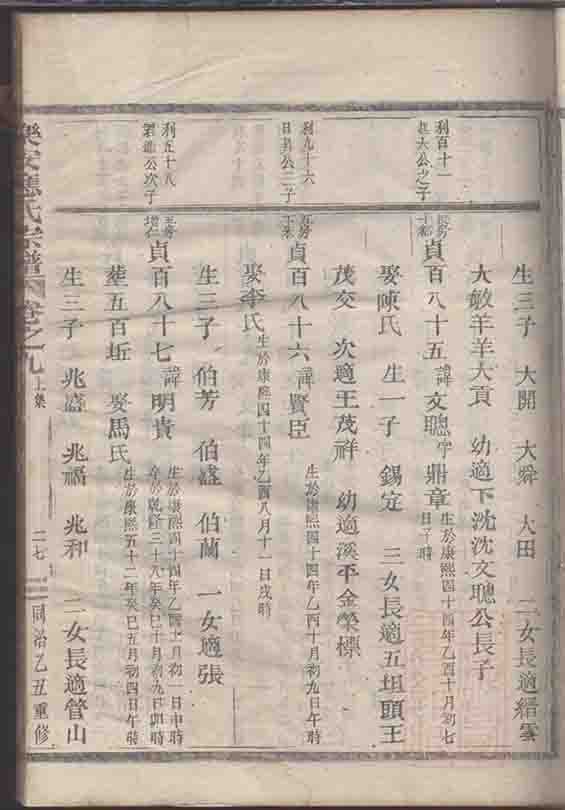 生三子 大開 大舜 大田 二女長適縉雲
大敏羊羊大貢 幼適下沈沈文聰公長子
利百十一
公之子
貞百八十五 諱文聰字鼎章 生於康熙四十四年乙酉十月初七日午時
娶陳氏 生一子 錫定 三女長適五坦頭王
茂交 次適王茂祥 幼適溪平金榮標
利九十六
公三子
貞百八十六 諱賢臣 生於康熙四十四年乙酉十月初九日午時
娶李氏 生於康熙四十四年乙酉八月十一日戌時
生三子 伯芳 伯盛 伯蘭 一女適張
利五十八
公次子
貞百八十七 諱明貴 生於康熙四十四年乙酉七月初一日申時 卒於乾隆三十八年癸巳十月初九日卯時
葬五百坵 娶馬氏 生於康熙五十二年癸巳五月初四日午時
生三子 兆盛 兆福 兆和 二女長適管山
樂安應氏宗譜 卷之九 上集 二七 同治乙丑重修